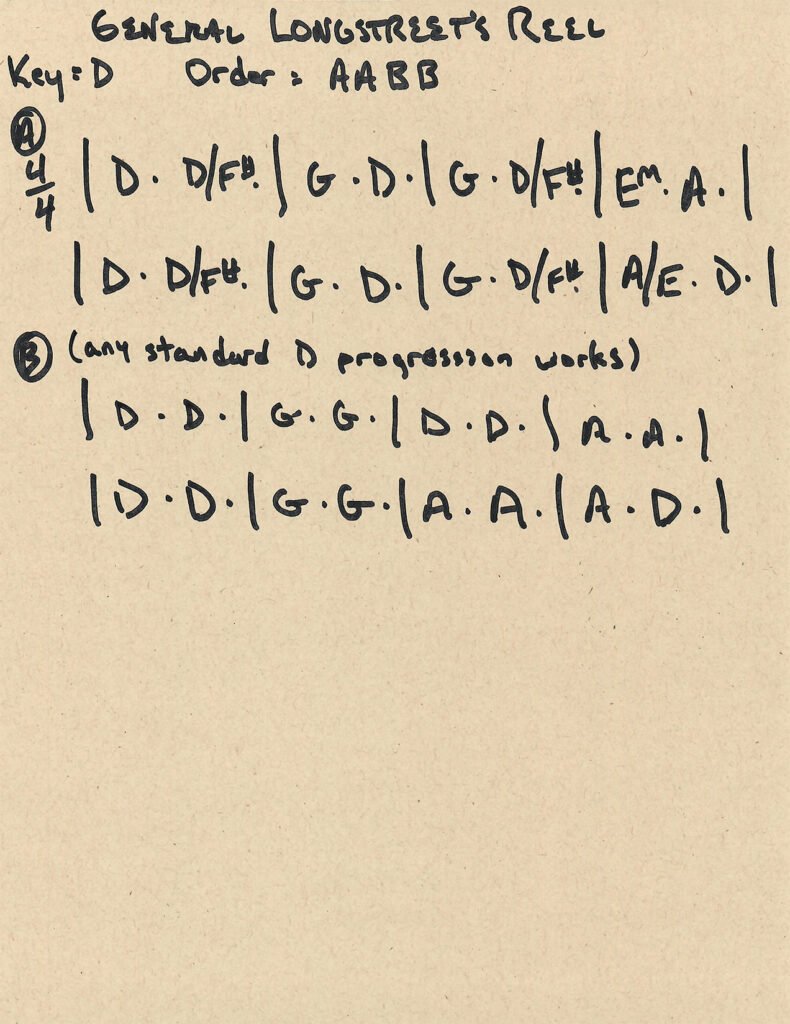 GENERAL LONGSTREET'S REEL
Key = D Order = AABB
Ⓐ
4/4 | D . D/F# . | G . D . | G . D/F# . | Em . A . |
| D . D/F# . | G . D . | G . D/F# . | A/E . D . |
Ⓑ (any standard D progression works)
| D . D . | G . G . | D . D . | A . A . |
| D . D . | G . G . | A . A . | A . D . |